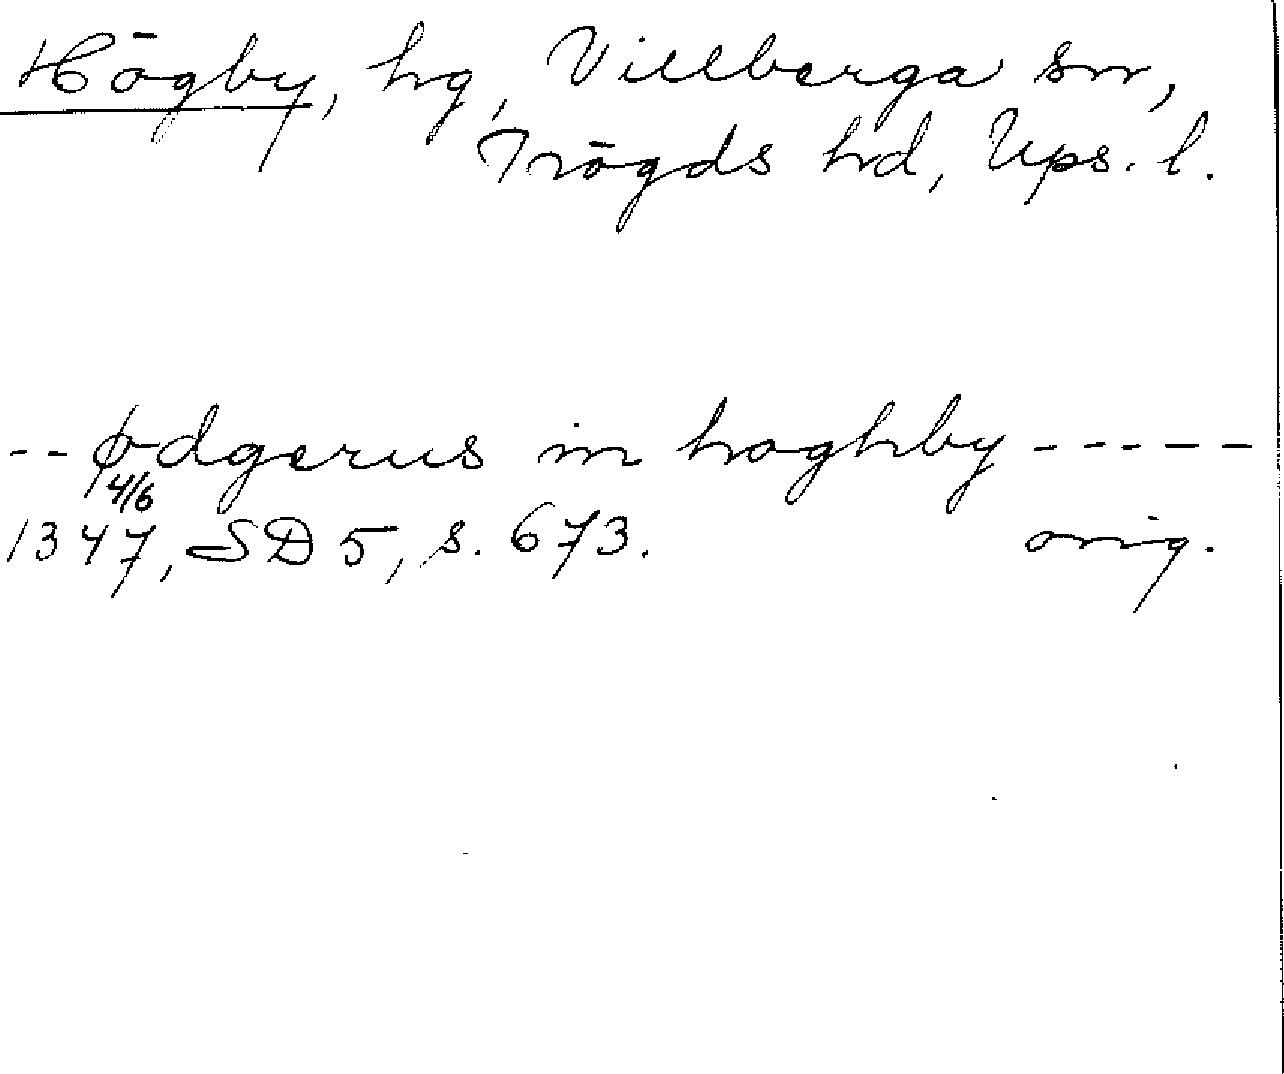 Högby, hg, Villberga sn,
Trögds hd, Ups. l.
-- ødgerus in hoghby -----
4/6
1347, SD 5, s. 673. orig.